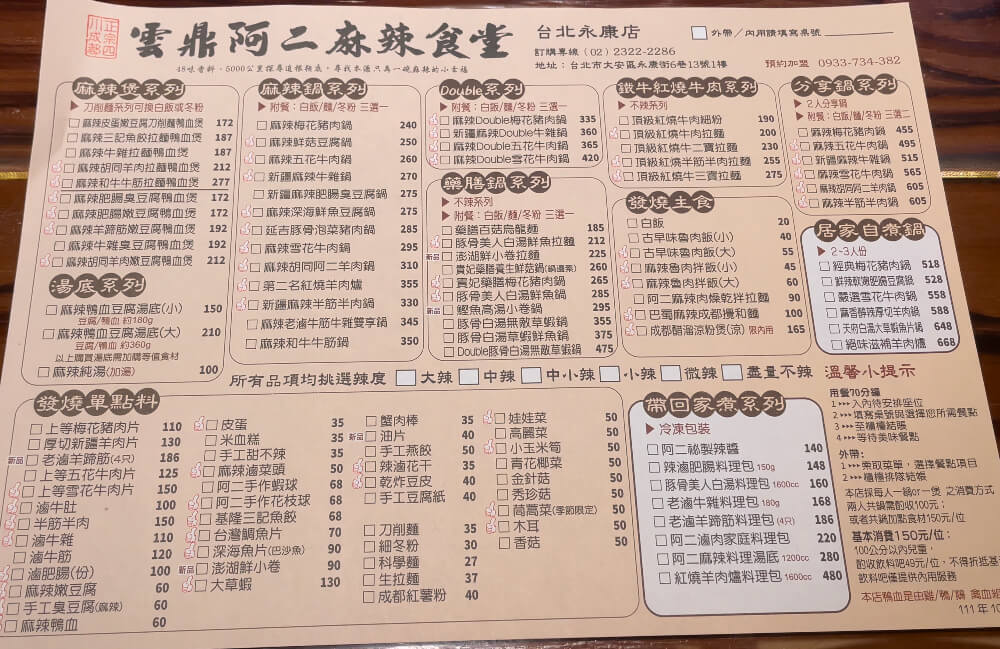 正宗四川成都
雲鼎阿二麻辣食堂
48味香料、5000公里探尋道根粗底，尋找本源只為一碗麻辣的小幸福
台北永康店
訂購專線 (02) 2322-2286
地址：台北市大安區永康街6巷13號1樓
外帶／內用請填寫桌號
預約加盟 0933-734-382
麻辣煲系列
▶ 刀削麵系列可換白飯或冬粉
麻辣皮蛋嫩豆腐刀削麵鴨血煲 172
麻辣三記魚餃拉麵鴨血煲 187
麻辣牛雜拉麵鴨血煲 187
麻辣胡同羊肉拉麵鴨血煲 212
麻辣和牛牛筋拉麵鴨血煲 277
麻辣肥腸臭豆腐鴨血煲 172
麻辣肥腸嫩豆腐鴨血煲 172
麻辣蹄筋嫩豆腐鴨血煲 192
麻辣牛雜臭豆腐鴨血煲 192
麻辣胡同羊嫩豆腐鴨血煲 212
湯底系列
麻辣鴨血豆腐湯底(小) 150
豆腐/鴨血 約180g
麻辣鴨血豆腐湯底(大) 210
豆腐/鴨血 約360g
以上購買湯底需加購等值食材
麻辣純湯(加湯) 100
麻辣鍋系列
▶ 附餐：白飯/麵/冬粉 三選一
麻辣梅花豬肉鍋 240
麻辣鮮菇豆腐鍋 250
麻辣五花牛肉鍋 260
新疆麻辣牛雜鍋 270
新疆麻辣肥腸臭豆腐鍋 275
麻辣深海鮮魚豆腐鍋 275
延吉豚骨泡菜豬肉鍋 285
麻辣雪花牛肉鍋 295
麻辣胡同阿二羊肉鍋 310
第二名紅燒羊肉爐 355
新疆麻辣半筋半肉鍋 330
麻辣老滷牛筋牛雜雙享鍋 345
麻辣和牛牛筋鍋 350
Double系列
▶ 附餐：白飯/麵/冬粉 三選一
麻辣Double梅花豬肉鍋 335
新疆麻辣Double牛雜鍋 360
麻辣Double五花牛肉鍋 365
麻辣Double雪花牛肉鍋 420
藥膳鍋系列
▶ 不辣系列
▶ 附餐：白飯/麵/冬粉 三選一
藥膳百菇烏龍麵 185
豚骨美人白湯鮮魚拉麵 212
新品 澎湖鮮小卷拉麵 225
貴妃藥膳養生鮮菇鍋(鍋邊素) 260
貴妃藥膳梅花豬肉鍋 265
豚骨美人白湯鮮魚鍋 285
新品 鰹魚高湯小卷鍋 295
豚骨白湯無敵草蝦鍋 355
豚骨白湯大草蝦鮮魚鍋 375
Double豚骨白湯無敵草蝦鍋 475
鐵牛紅燒牛肉系列
▶ 不辣系列
頂級紅燒牛肉細粉 190
頂級紅燒牛肉拉麵 200
頂級紅燒牛二寶拉麵 230
頂級紅燒牛筋半肉拉麵 255
頂級紅燒牛三寶拉麵 275
發燒主食
白飯 20
古早味魯肉飯(小) 40
古早味魯肉飯(大) 55
麻辣魯肉拌飯(小) 45
麻辣魯肉拌飯(大) 60
阿二麻辣肉燥乾拌拉麵 90
巴蜀麻辣成都擾和麵 100
成都醋溜涼粉煲(涼) 限內用 165
分享鍋系列
▶ 2人分享鍋
▶ 附餐：白飯/麵/冬粉 三選一
麻辣梅花豬肉鍋 455
麻辣五花牛肉鍋 495
新疆麻辣牛雜鍋 515
麻辣雪花牛肉鍋 565
麻辣胡同阿二羊肉鍋 605
麻辣半筋半肉鍋 605
居家自煮鍋
▶ 2-3人份
經典梅花豬肉鍋 518
鮮辣軟嫩肥腸豆腐鍋 528
嚴選雪花牛肉鍋 558
麻香醇辣厚切羊肉鍋 588
天府白湯大草蝦魚片鍋 648
絕味滋補羊肉爐 668
所有品項均挑選辣度 大辣 中辣 中小辣 小辣 微辣 盡量不辣
發燒單點料
上等梅花豬肉片 110
厚切新疆羊肉片 130
新品 老滷羊蹄筋(4只) 186
上等五花牛肉片 125
上等雪花牛肉片 150
滷牛肚 100
半筋半肉 150
滷牛雜 110
滷牛筋 120
滷肥腸(份) 100
麻辣嫩豆腐 60
手工臭豆腐(麻辣) 60
麻辣鴨血 60
皮蛋 35
米血糕 35
手工甜不辣 35
麻辣滷菜頭 50
阿二手作蝦球 68
阿二手作花枝球 68
基隆三記魚餃 68
台灣鯛魚片 70
深海魚片(巴沙魚) 90
新品 澎湖鮮小卷 90
大草蝦 130
蟹肉棒 35
新品 油片 40
手工燕餃 50
辣滷花干 35
乾炸豆皮 40
手工豆腐紙 40
刀削麵 35
細冬粉 30
科學麵 27
生拉麵 37
成都紅薯粉 40
娃娃菜 50
高麗菜 50
小玉米筍 50
青花椰菜 50
金針菇 50
秀珍菇 50
茼蒿菜(季節限定) 50
木耳 50
香菇 50
帶回家煮系列
▶ 冷凍包裝
阿二祕製辣醬 140
辣滷肥腸料理包 150g 148
豚骨美人白湯料理包 1600cc 160
老滷牛雜料理包 180g 168
老滷羊蹄筋料理包 (4只) 186
阿二滷肉家庭料理包 220
阿二麻辣料理湯底 1200cc 280
紅燒羊肉爐料理包 1600cc 480
溫馨小提示
用餐70分鐘
1 ▸▸▸ 入內待安排座位
2 ▸▸▸ 填寫桌號與選擇您所需餐點
3 ▸▸▸ 至櫃檯結帳
4 ▸▸▸ 等待美味餐點
外帶：
1 ▸▸▸ 索取菜單，選擇餐點項目
2 ▸▸▸ 櫃檯排隊結帳
本店採每人一鍋or一煲 之消費方式
兩人共鍋需酌收100元；
或者共鍋加點食材150元/位
基本消費150元/位：
100公分以內兒童，
酌收飲料吧49元/位，不得折抵基
飲料吧僅提供內用服務
本店鴨血是由雞/鴨/鵝 禽血
111 年 10